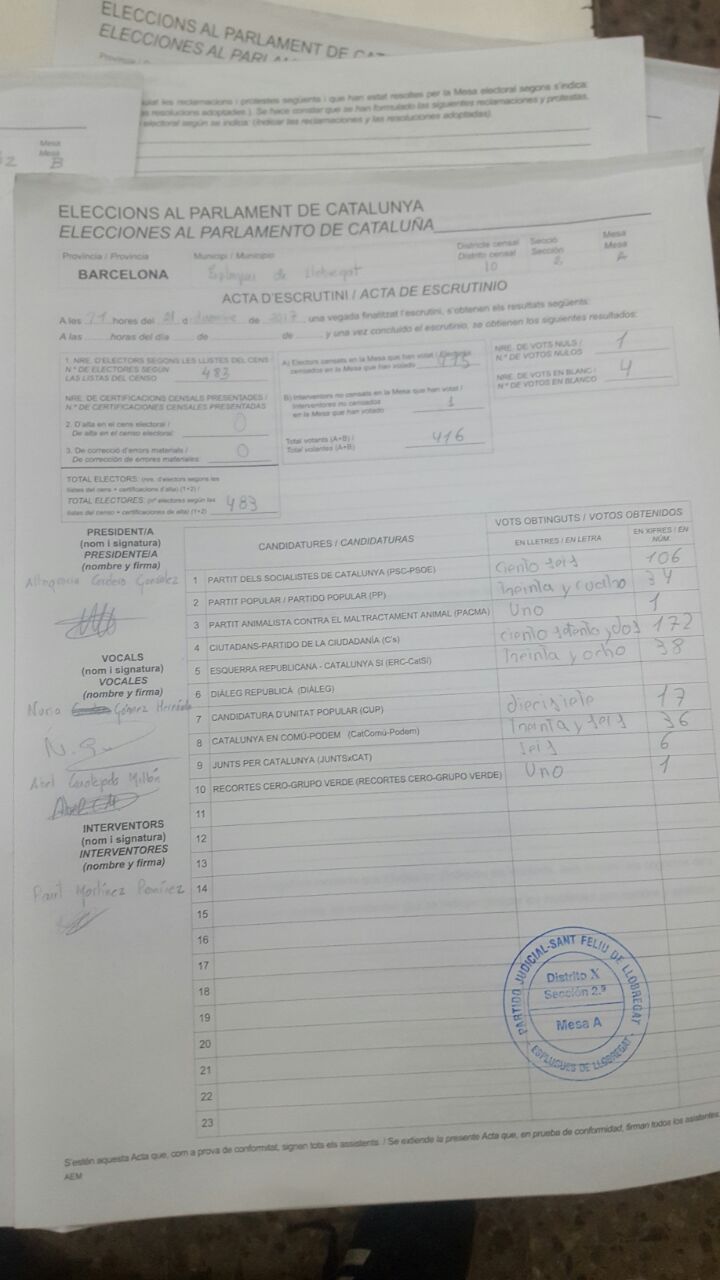 ELECCIONS AL PARLAMENT DE CA
ELECCIONES AL PARLAM
les reclamacions i protestes següents i que han estat resoltes per la Mesa electoral segons s'indica:
resolucions adoptades.). Se hace constar que se han formulado las siguientes reclamaciones y protestas,
electoral según se indica: (Indicar las reclamaciones y las resoluciones adoptadas).
Mesa
Mesa
B
ELECCIONS AL PARLAMENT DE CATALUNYA
ELECCIONES AL PARLAMENTO DE CATALUÑA
Província / Provincia Municipi / Municipio Districte censal Secció Mesa
Distrito censal Sección Mesa
BARCELONA Esplugues de Llobregat 10 2 A
ACTA D'ESCRUTINI / ACTA DE ESCRUTINIO
A les 21 hores del 21 d desembre de 2017, una vegada finalitzat l'escrutini, s'obtenen els resultats següents:
A las horas del día de de y una vez concluido el escrutinio, se obtienen los siguientes resultados:
1. NRE. D'ELECTORS SEGONS LES LLISTES DEL CENS
N.º DE ELECTORES SEGÚN
LAS LISTAS DEL CENSO 483
NRE. DE CERTIFICACIONS CENSALS PRESENTADES /
N.º DE CERTIFICACIONES CENSALES PRESENTADAS
2. D'alta en el cens electoral /
De alta en el censo electoral: 0
3. De correcció d'errors materials /
De corrección de errores materiales: 0
TOTAL ELECTORS: (nre. d'electors segons les
llistes del cens + certificacions d'alta) (1+2) /
TOTAL ELECTORES: (nº electores según las
listas del censo + certificaciones de alta) (1+2) 483
A) Electors censats en la Mesa que han votat /
censados en la Mesa que han votado 415
B) Interventors no censats en la Mesa que han votat /
Interventores no censados
en la Mesa que han votado 1
Total votants (A+B) /
Total votantes (A+B) 416
NRE. DE VOTS NULS /
N.º DE VOTOS NULOS 1
NRE. DE VOTS EN BLANC /
N.º DE VOTOS EN BLANCO 4
PRESIDENT/A
(nom i signatura)
PRESIDENTE/A
(nombre y firma)
VOCALS
(nom i signatura)
VOCALES
(nombre y firma)
Nuria Gómez
N. G
Abel
INTERVENTORS
(nom i signatura)
INTERVENTORES
(nombre y firma)
Martínez Ramírez
CANDIDATURES / CANDIDATURAS VOTS OBTINGUTS / VOTOS OBTENIDOS
EN LLETRES / EN LETRA EN XIFRES / EN NÚM.
1 PARTIT DELS SOCIALISTES DE CATALUNYA (PSC-PSOE) ciento seis 106
2 PARTIT POPULAR / PARTIDO POPULAR (PP) treinta y cuatro 34
3 PARTIT ANIMALISTA CONTRA EL MALTRACTAMENT ANIMAL (PACMA) Uno 1
4 CIUTADANS-PARTIDO DE LA CIUDADANÍA (C's) ciento setenta y dos 172
5 ESQUERRA REPUBLICANA - CATALUNYA SÍ (ERC-CatSí) treinta y ocho 38
6 DIÀLEG REPUBLICÀ (DIÀLEG)
7 CANDIDATURA D'UNITAT POPULAR (CUP) diecisiete 17
8 CATALUNYA EN COMÚ-PODEM (CatComú-Podem) treinta y seis 36
9 JUNTS PER CATALUNYA (JUNTSxCAT) seis 6
10 RECORTES CERO-GRUPO VERDE (RECORTES CERO-GRUPO VERDE) Uno 1
11
12
13
14
15
16
17
18
19
20
21
22
23
PARTIDO JUDICIAL-SANT FELIU DE LLOBREGAT
Distrito X
Sección 2.ª
Mesa A
ESPLUGUES DE LLOBREGAT
S'estén aquesta Acta que, com a prova de conformitat, signen tots els assistents. / Se extiende la presente Acta que, en prueba de conformidad, firman todos los asistentes
AEM